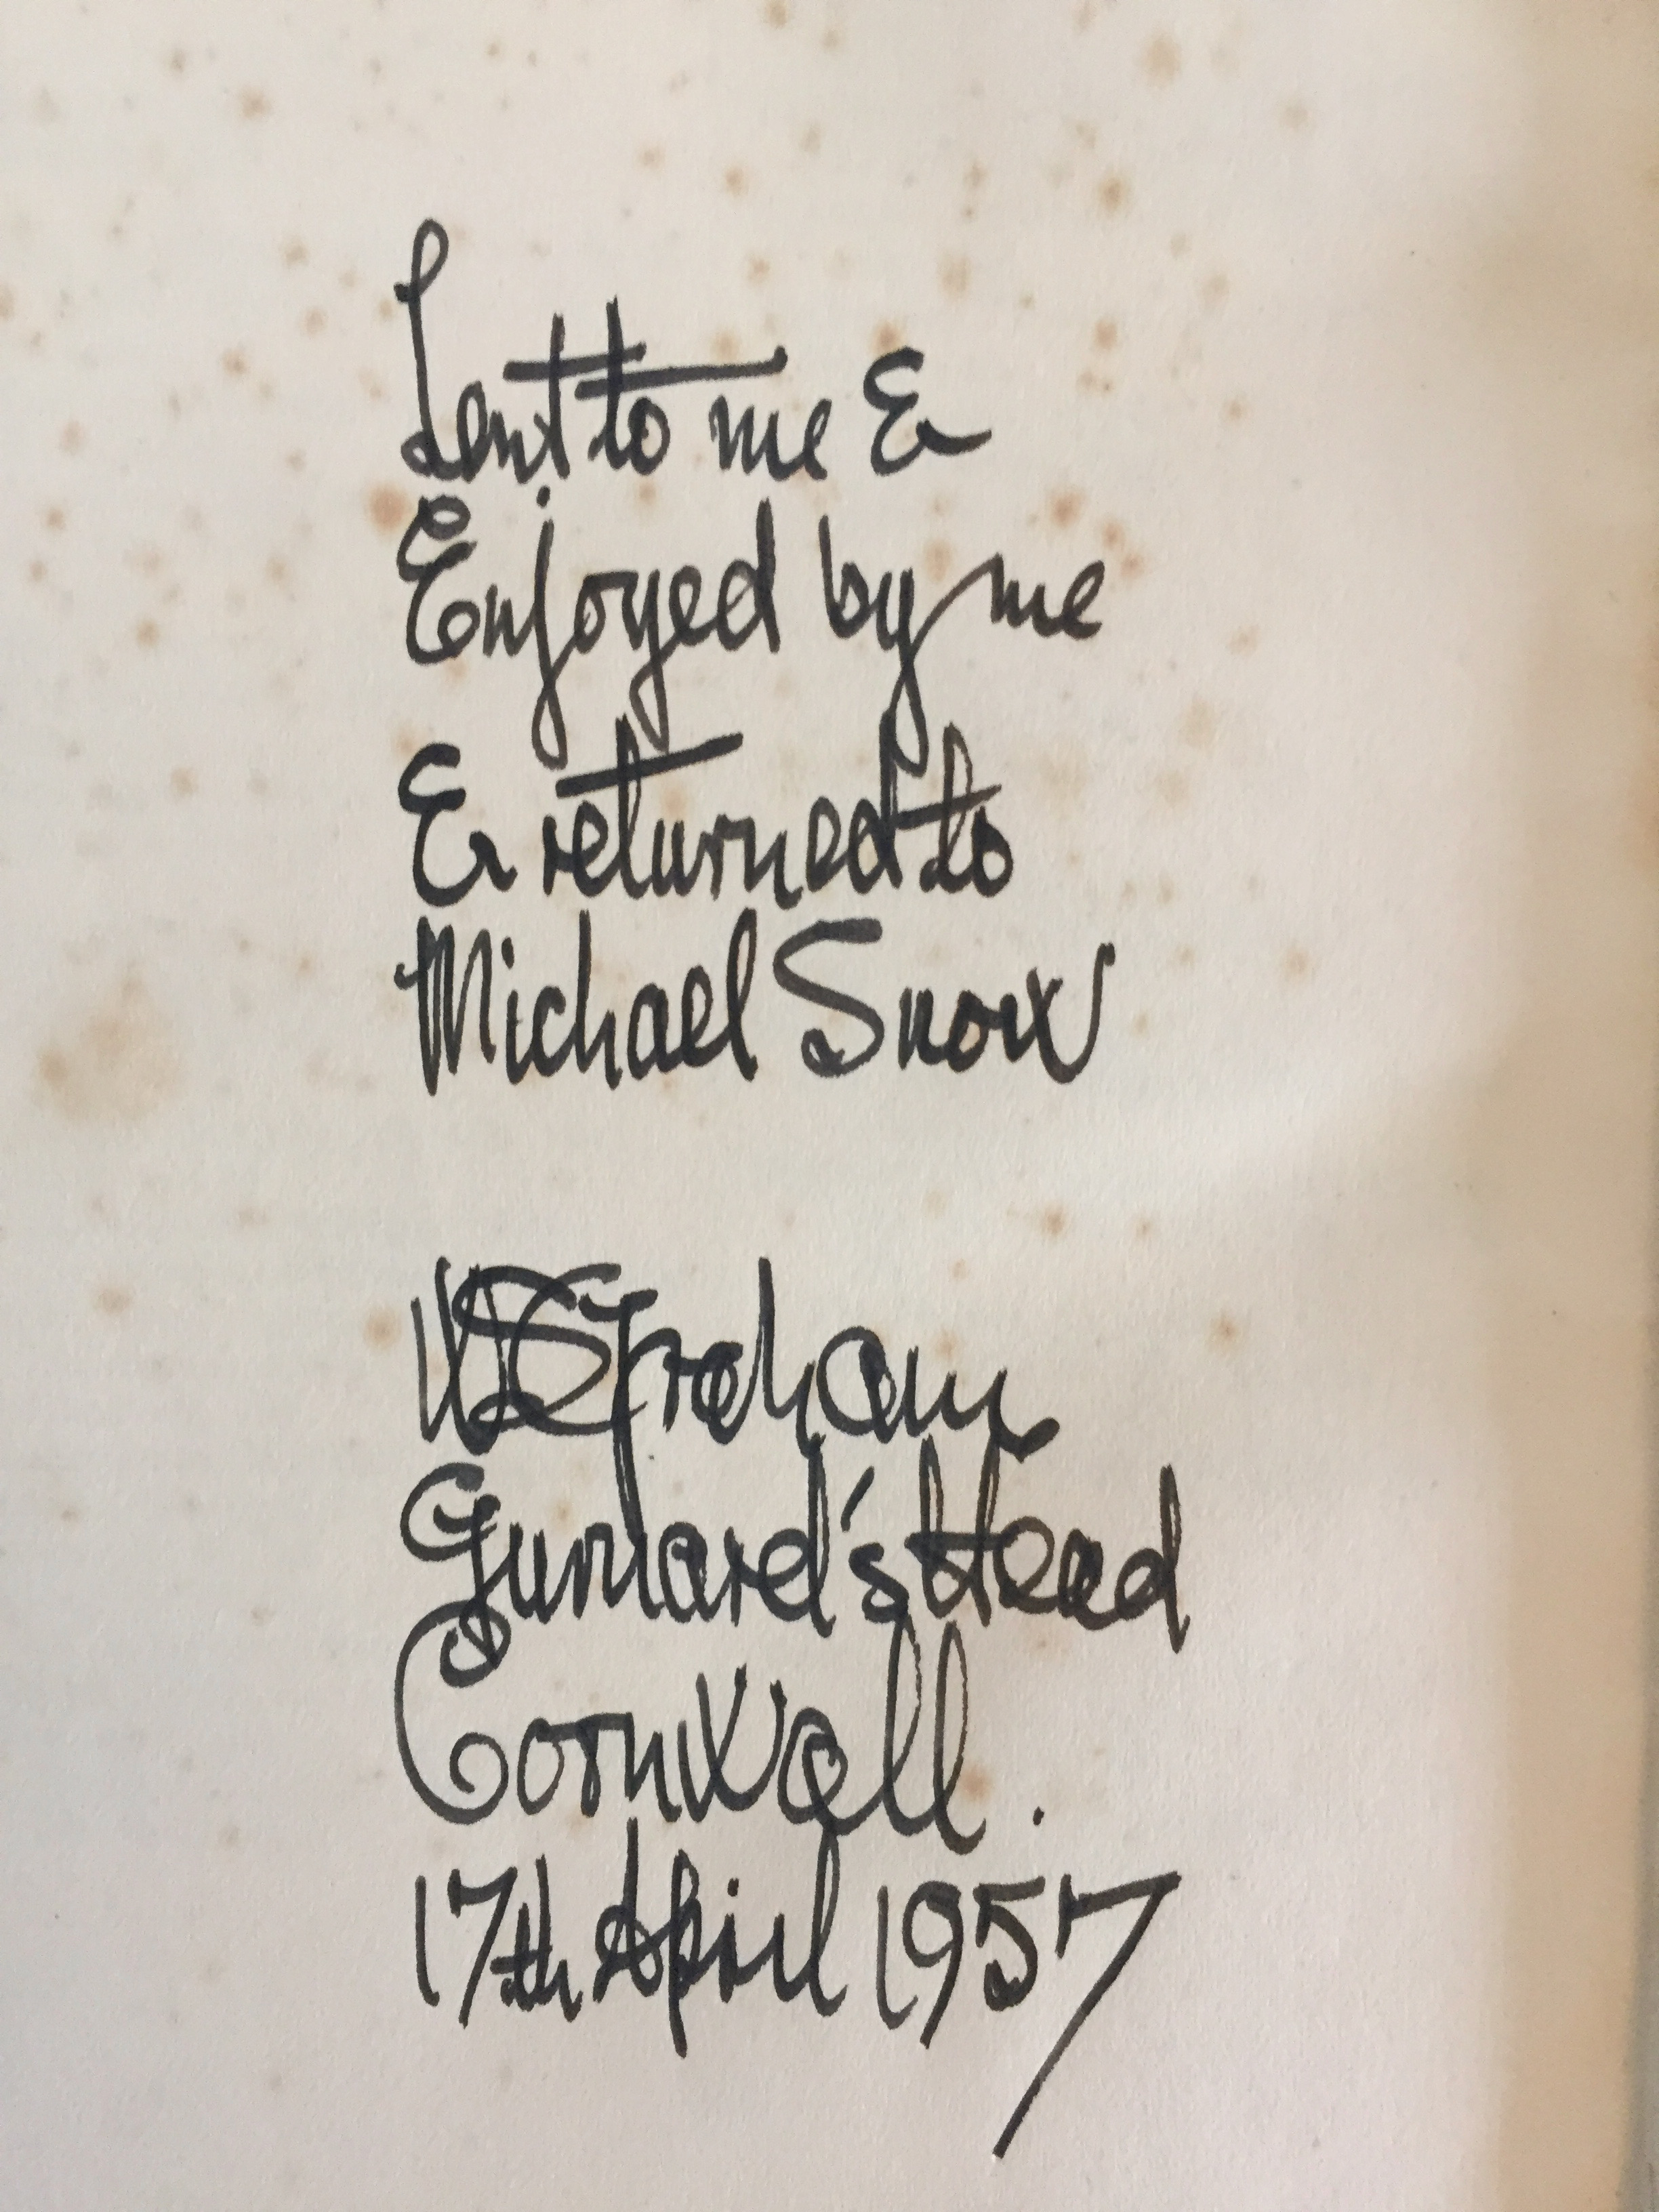 Lent to me &
Enjoyed by me
& returned to
Michael Snow
WS Graham
Gurnard's Head
Cornwall.
17th April 1957